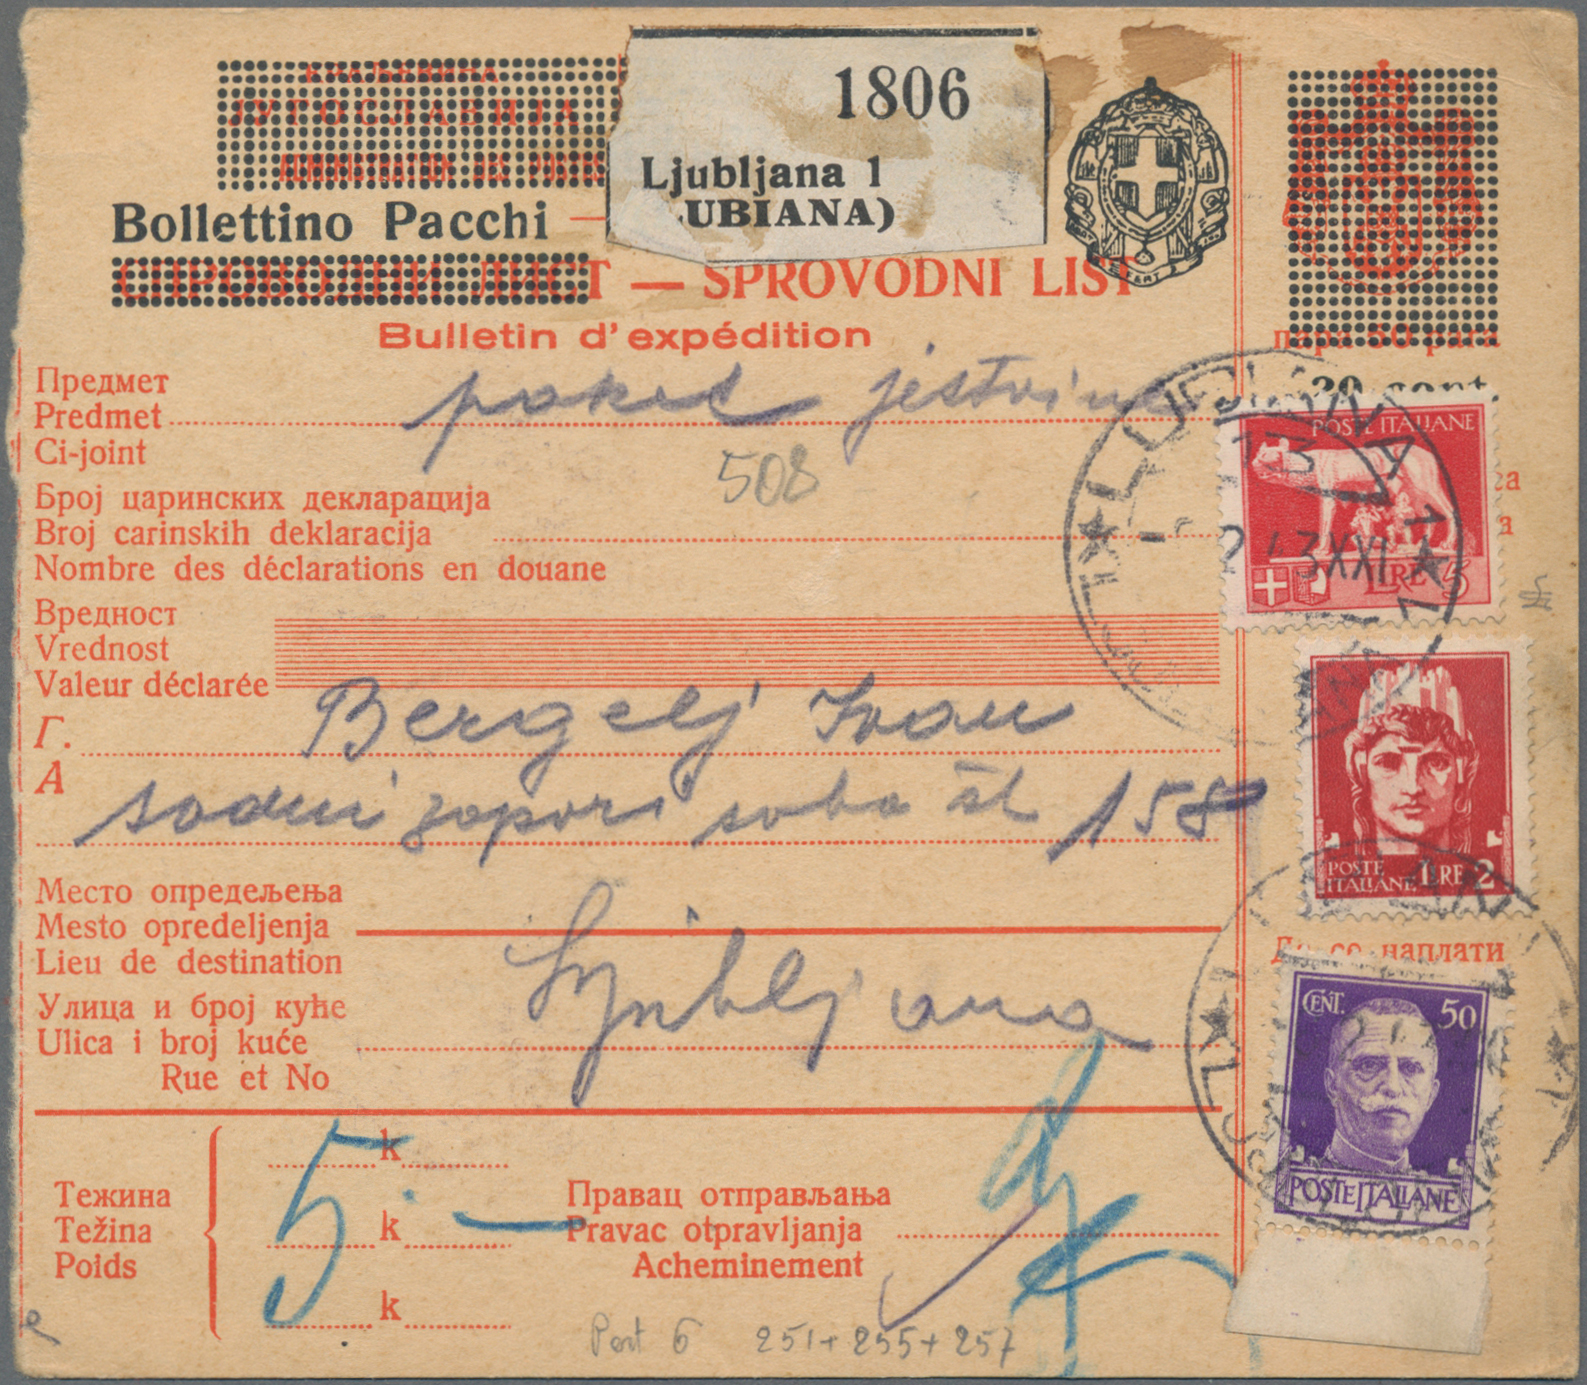 КРАЉЕВИНА
ЈУГОСЛАВИЈА
ADMINISTRATION DES POSTES
1806
Ljubljana 1
UBIANA)
Bollettino Pacchi —
СПРОВОДНИ ЛИСТ — SPROVODNI LIST
FERT
Bulletin d'expédition
пара 50 para
20 cent.
Предмет
Predmet
Ci-joint
paket jestvin
508
Број царинских декларација
Broj carinskih deklaracija
Nombre des déclarations en douane
POSTE ITALIANE
LIRE 5
LUBIANA 1
2 43 XXI
Вредност
Vrednost
Valeur déclarée
Г.
A
Bergelj Ivan
sodni zapori soba št 158
POSTE ITALIANE LIRE 2
Место опредељења
Mesto opredeljenja
Lieu de destination
Ljubljana
Да се наплати
Улица и број куће
Ulica i broj kuće
Rue et No
CENT. 50
POSTE ITALIANE
Тежина
Težina
Poids
k
k
k
5 —
Правац отправљања
Pravac otpravljanja
Acheminement
Port 6 251+255+257